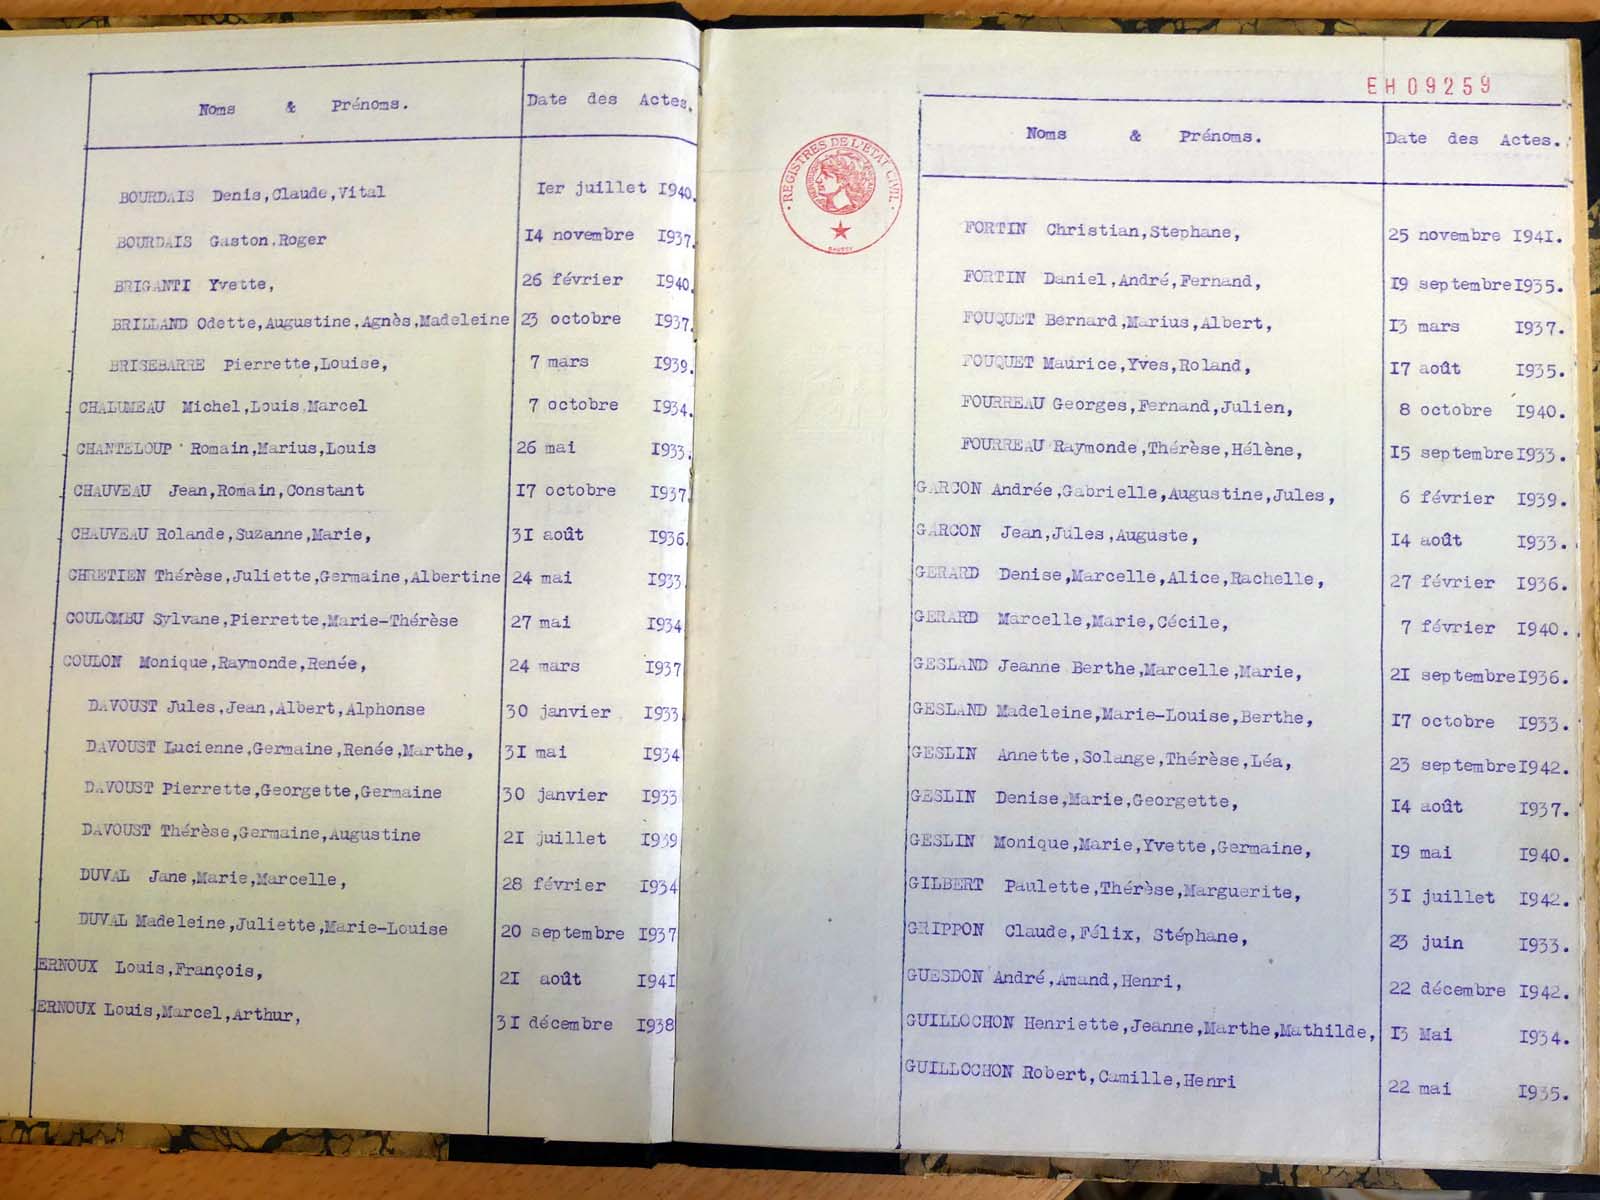 Noms & Prénoms. Date des Actes.
BOURDAIS Denis,Claude,Vital 1er juillet 1940.
BOURDAIS Gaston,Roger 14 novembre 1937.
BRIGANTI Yvette, 26 février 1940.
BRILLAND Odette,Augustine,Agnès,Madeleine 23 octobre 1937.
BRISEBARRE Pierrette,Louise, 7 mars 1939.
CHALUMEAU Michel,Louis,Marcel 7 octobre 1934.
CHANTELOUP Romain,Marius,Louis 26 mai 1933.
CHAUVEAU Jean,Romain,Constant 17 octobre 1937
CHAUVEAU Rolande,Suzanne,Marie, 31 août 1936.
CHRETIEN Thérèse,Juliette,Germaine,Albertine 24 mai 1933
COULOMBU Sylvane,Pierrette,Marie-Thérèse 27 mai 1934
COULON Monique,Raymonde,Renée, 24 mars 1937
DAVOUST Jules,Jean,Albert,Alphonse 30 janvier 1933
DAVOUST Lucienne,Germaine,Renée,Marthe, 31 mai 1934
DAVOUST Pierrette,Georgette,Germaine 30 janvier 1933
DAVOUST Thérèse,Germaine,Augustine 21 juillet 1939
DUVAL Jane,Marie,Marcelle, 28 février 1934
DUVAL Madeleine,Juliette,Marie-Louise 20 septembre 1937
ERNOUX Louis,François, 21 août 1941
ERNOUX Louis,Marcel,Arthur, 31 décembre 1938
REGISTRES DE L'ETAT CIVIL
EH09259
Noms & Prénoms. Date des Actes.
FORTIN Christian,Stephane, 25 novembre 1941.
FORTIN Daniel,André,Fernand, 19 septembre 1935.
FOUQUET Bernard,Marius,Albert, 13 mars 1937.
FOUQUET Maurice,Yves,Roland, 17 août 1935.
FOURREAU Georges,Fernand,Julien, 8 octobre 1940.
FOURREAU Raymonde,Thérèse,Hélène, 15 septembre 1933.
GARCON Andrée,Gabrielle,Augustine,Jules, 6 février 1939.
GARCON Jean,Jules,Auguste, 14 août 1933.
GERARD Denise,Marcelle,Alice,Rachelle, 27 février 1936.
GERARD Marcelle,Marie,Cécile, 7 février 1940.
GESLAND Jeanne Berthe,Marcelle,Marie, 21 septembre 1936.
GESLAND Madeleine,Marie-Louise,Berthe, 17 octobre 1933.
GESLIN Annette,Solange,Thérèse,Léa, 23 septembre 1942.
GESLIN Denise,Marie,Georgette, 14 août 1937.
GESLIN Monique,Marie,Yvette,Germaine, 19 mai 1940.
GILBERT Paulette,Thérèse,Marguerite, 31 juillet 1942.
GRIPPON Claude,Félix, Stéphane, 23 juin 1933.
GUESDON André,Amand,Henri, 22 décembre 1942.
GUILLOCHON Henriette,Jeanne,Marthe,Mathilde, 13 Mai 1934.
GUILLOCHON Robert,Camille,Henri 22 mai 1935.